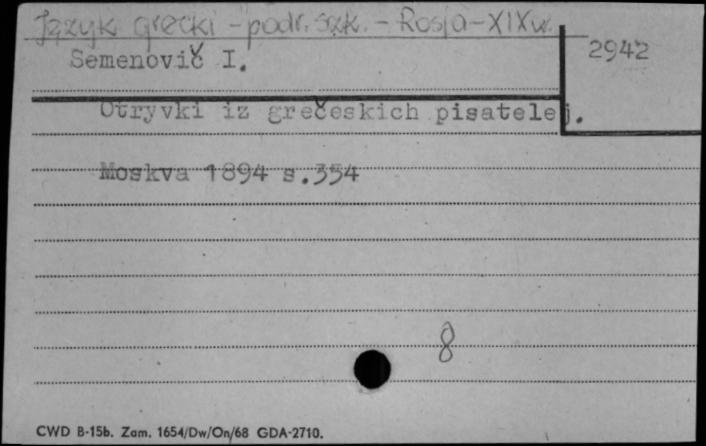 Język grecki - podr. szk. - Rosja - XIX w.
2942
Semenovič I.
Otryvki iz grečeskich pisatelej.
Moskva 1894 s.354
8
CWD B-15b. Zam. 1654/Dw/On/68 GDA-2710.